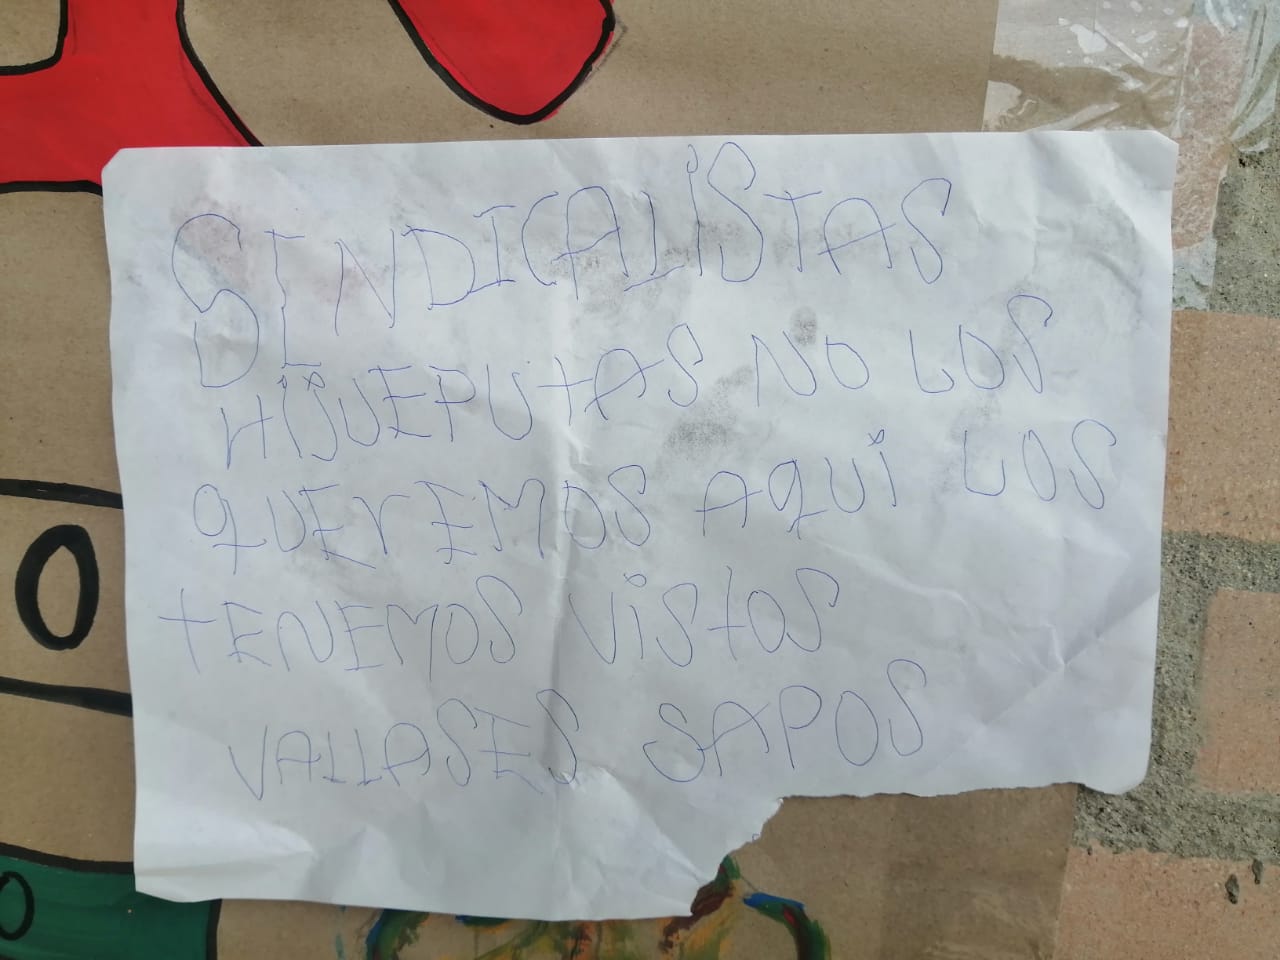 SINDICALISTAS
HIJUEPUTAS NO LOS
QUEREMOS AQUI LOS
TENEMOS VISTOS
VALLASES SAPOS